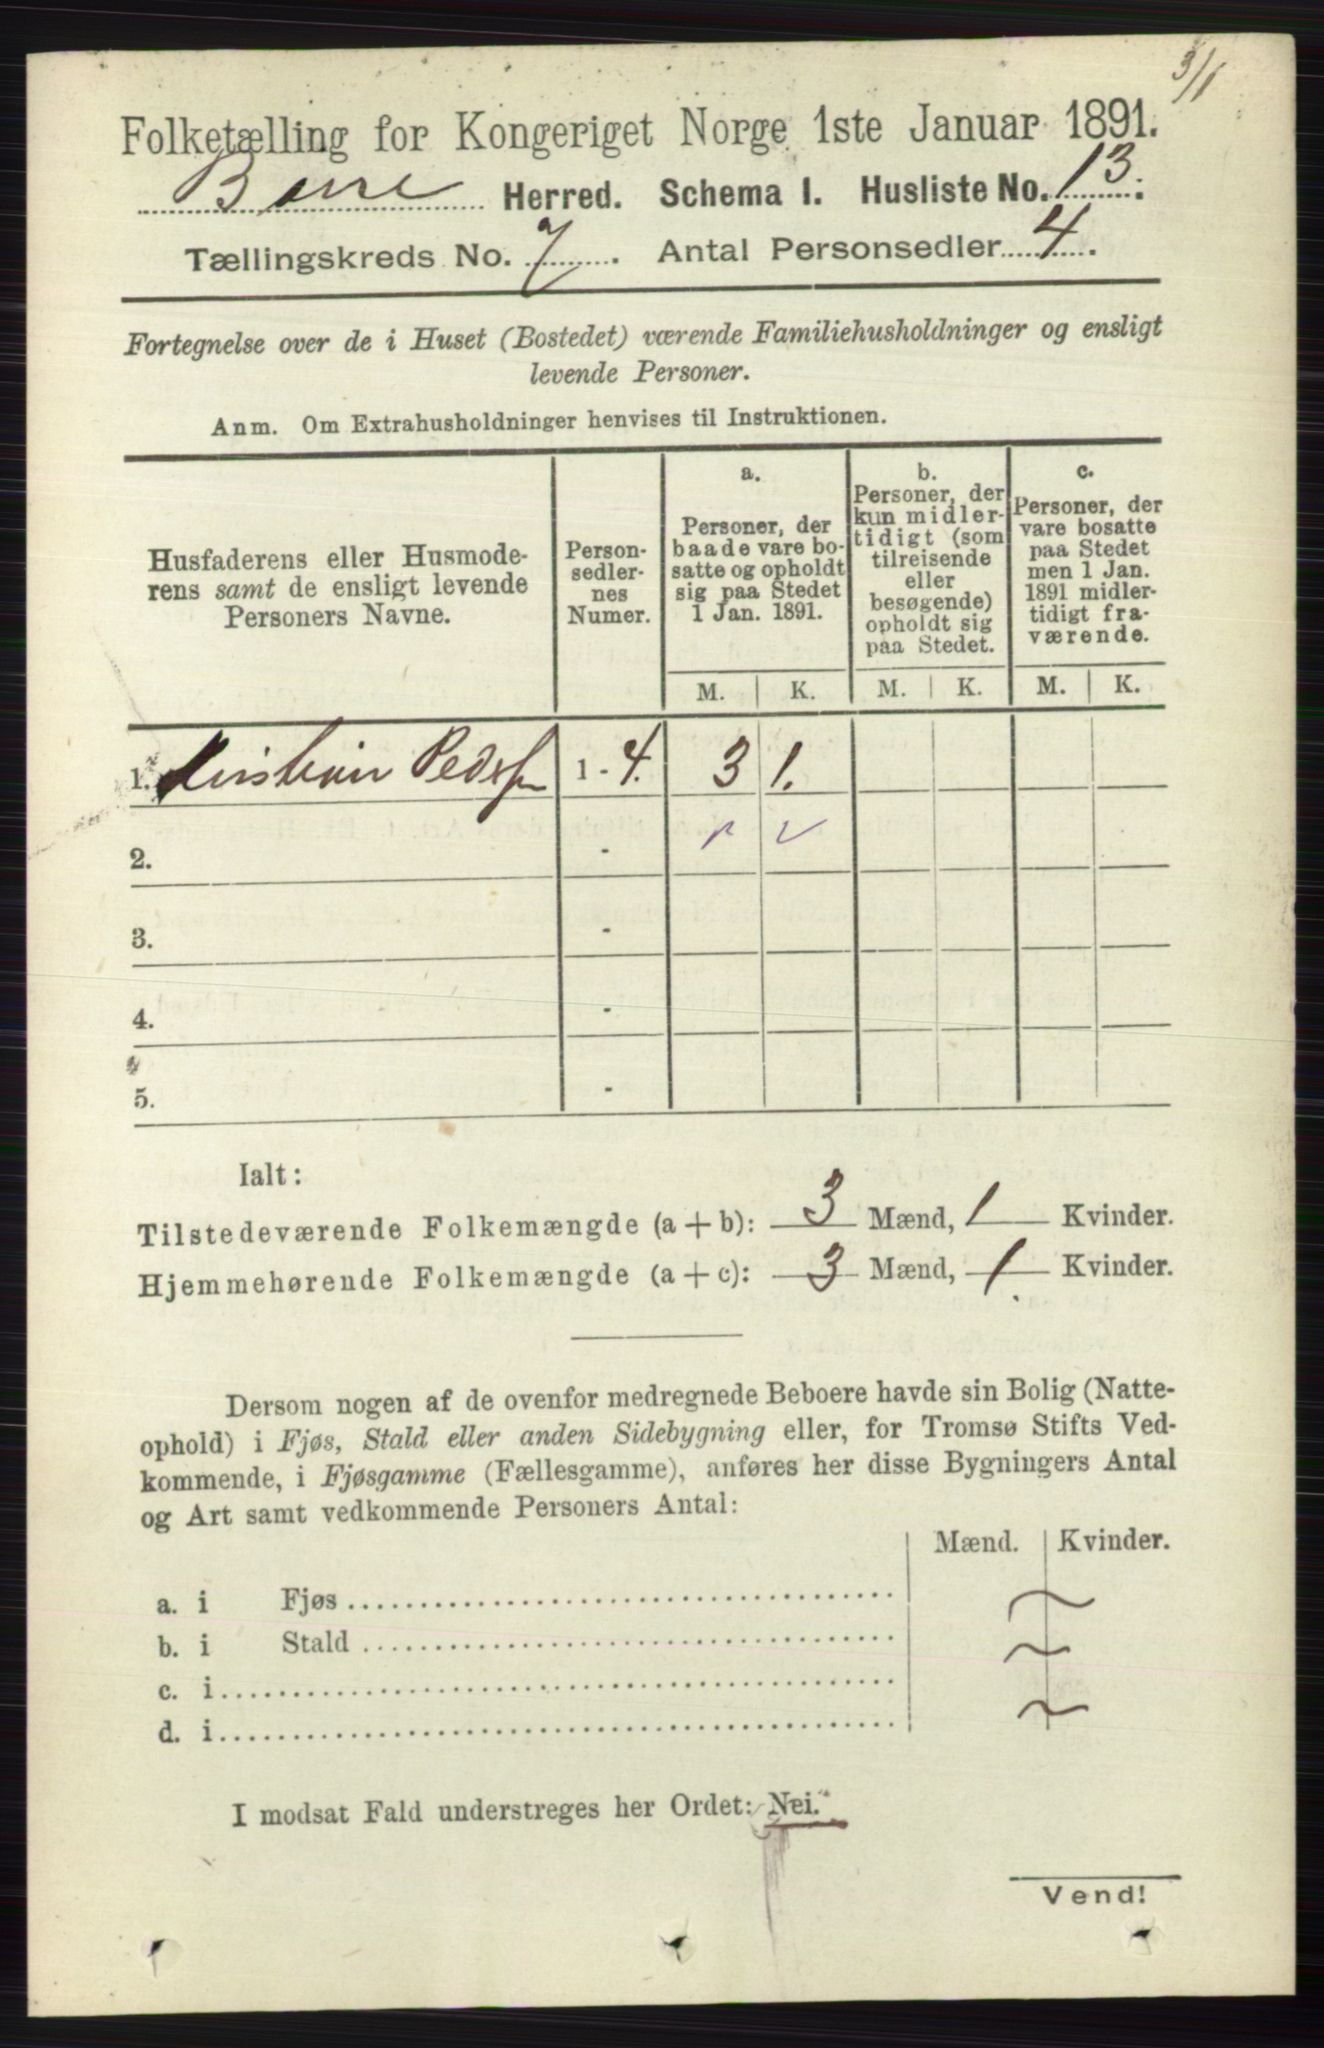 3/1
Folketælling for Kongeriget Norge 1ste Januar 1891.
Borre Herred. Schema 1. Husliste No. 13.
Tællingskreds No. 7. Antal Personsedler 4.
Fortegnelse over de i Huset (Bostedet) værende Familiehusholdninger og ensligt
levende Personer.
Anm. Om Extrahusholdninger henvises til Instruktionen.
Husfaderens eller Husmode-
rens samt de ensligt levende
Personers Navne.
Person-
sedler-
nes
Numer.
a.
Personer, der
baade vare bo-
satte og opholdt
sig paa Stedet
1 Jan. 1891.
b.
Personer, der
kun midler-
tidigt (som
tilreisende
eller
besøgende)
opholdt sig
paa Stedet.
c.
Personer, der
vare bosatte
paa Stedet
men 1 Jan.
1891 midler-
tidigt fra-
værende.
M. K. M. K. M. K.
1. Kristian Peders 1 - 4. 3 1.
2. -
3. -
4. -
5. -
Ialt:
Tilstedeværende Folkemængde (a + b): 3 Mænd, 1 Kvinder.
Hjemmehørende Folkemængde (a + c): 3 Mænd, 1 Kvinder.
Dersom nogen af de ovenfor medregnede Beboere havde sin Bolig (Natte-
ophold) i Fjøs, Stald eller anden Sidebygning eller, for Tromsø Stifts Ved-
kommende, i Fjøsgamme (Fællesgamme), anføres her disse Bygningers Antal
og Art samt vedkommende Personers Antal:
Mænd. Kvinder.
a. i Fjøs
b. i Stald
c. i
d. i
I modsat Fald understreges her Ordet: Nei.
Vend!